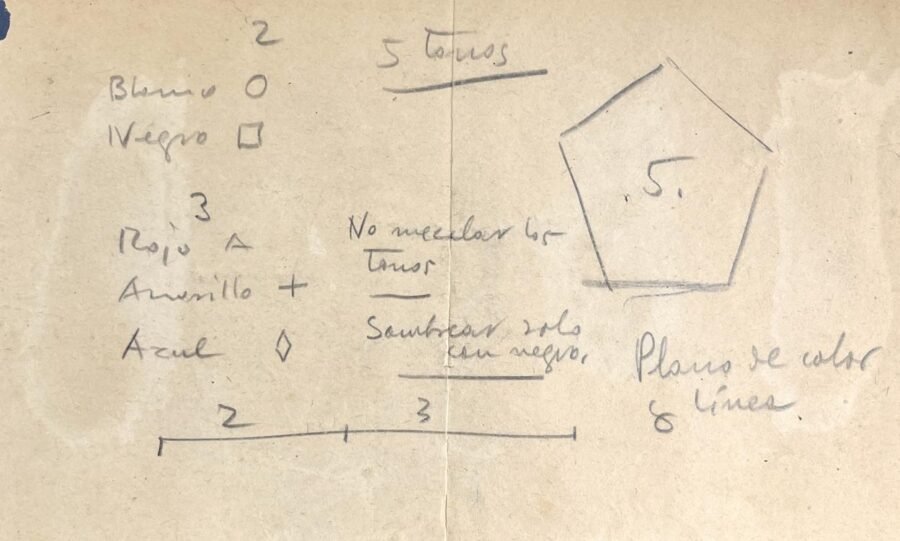 2
5 tonos
Blanco
Negro
3
Rojo
Amarillo +
Azul
No mezclar los
Tonos
Sombrear solo
con negro.
.5.
Plano de color
y línea
2 3